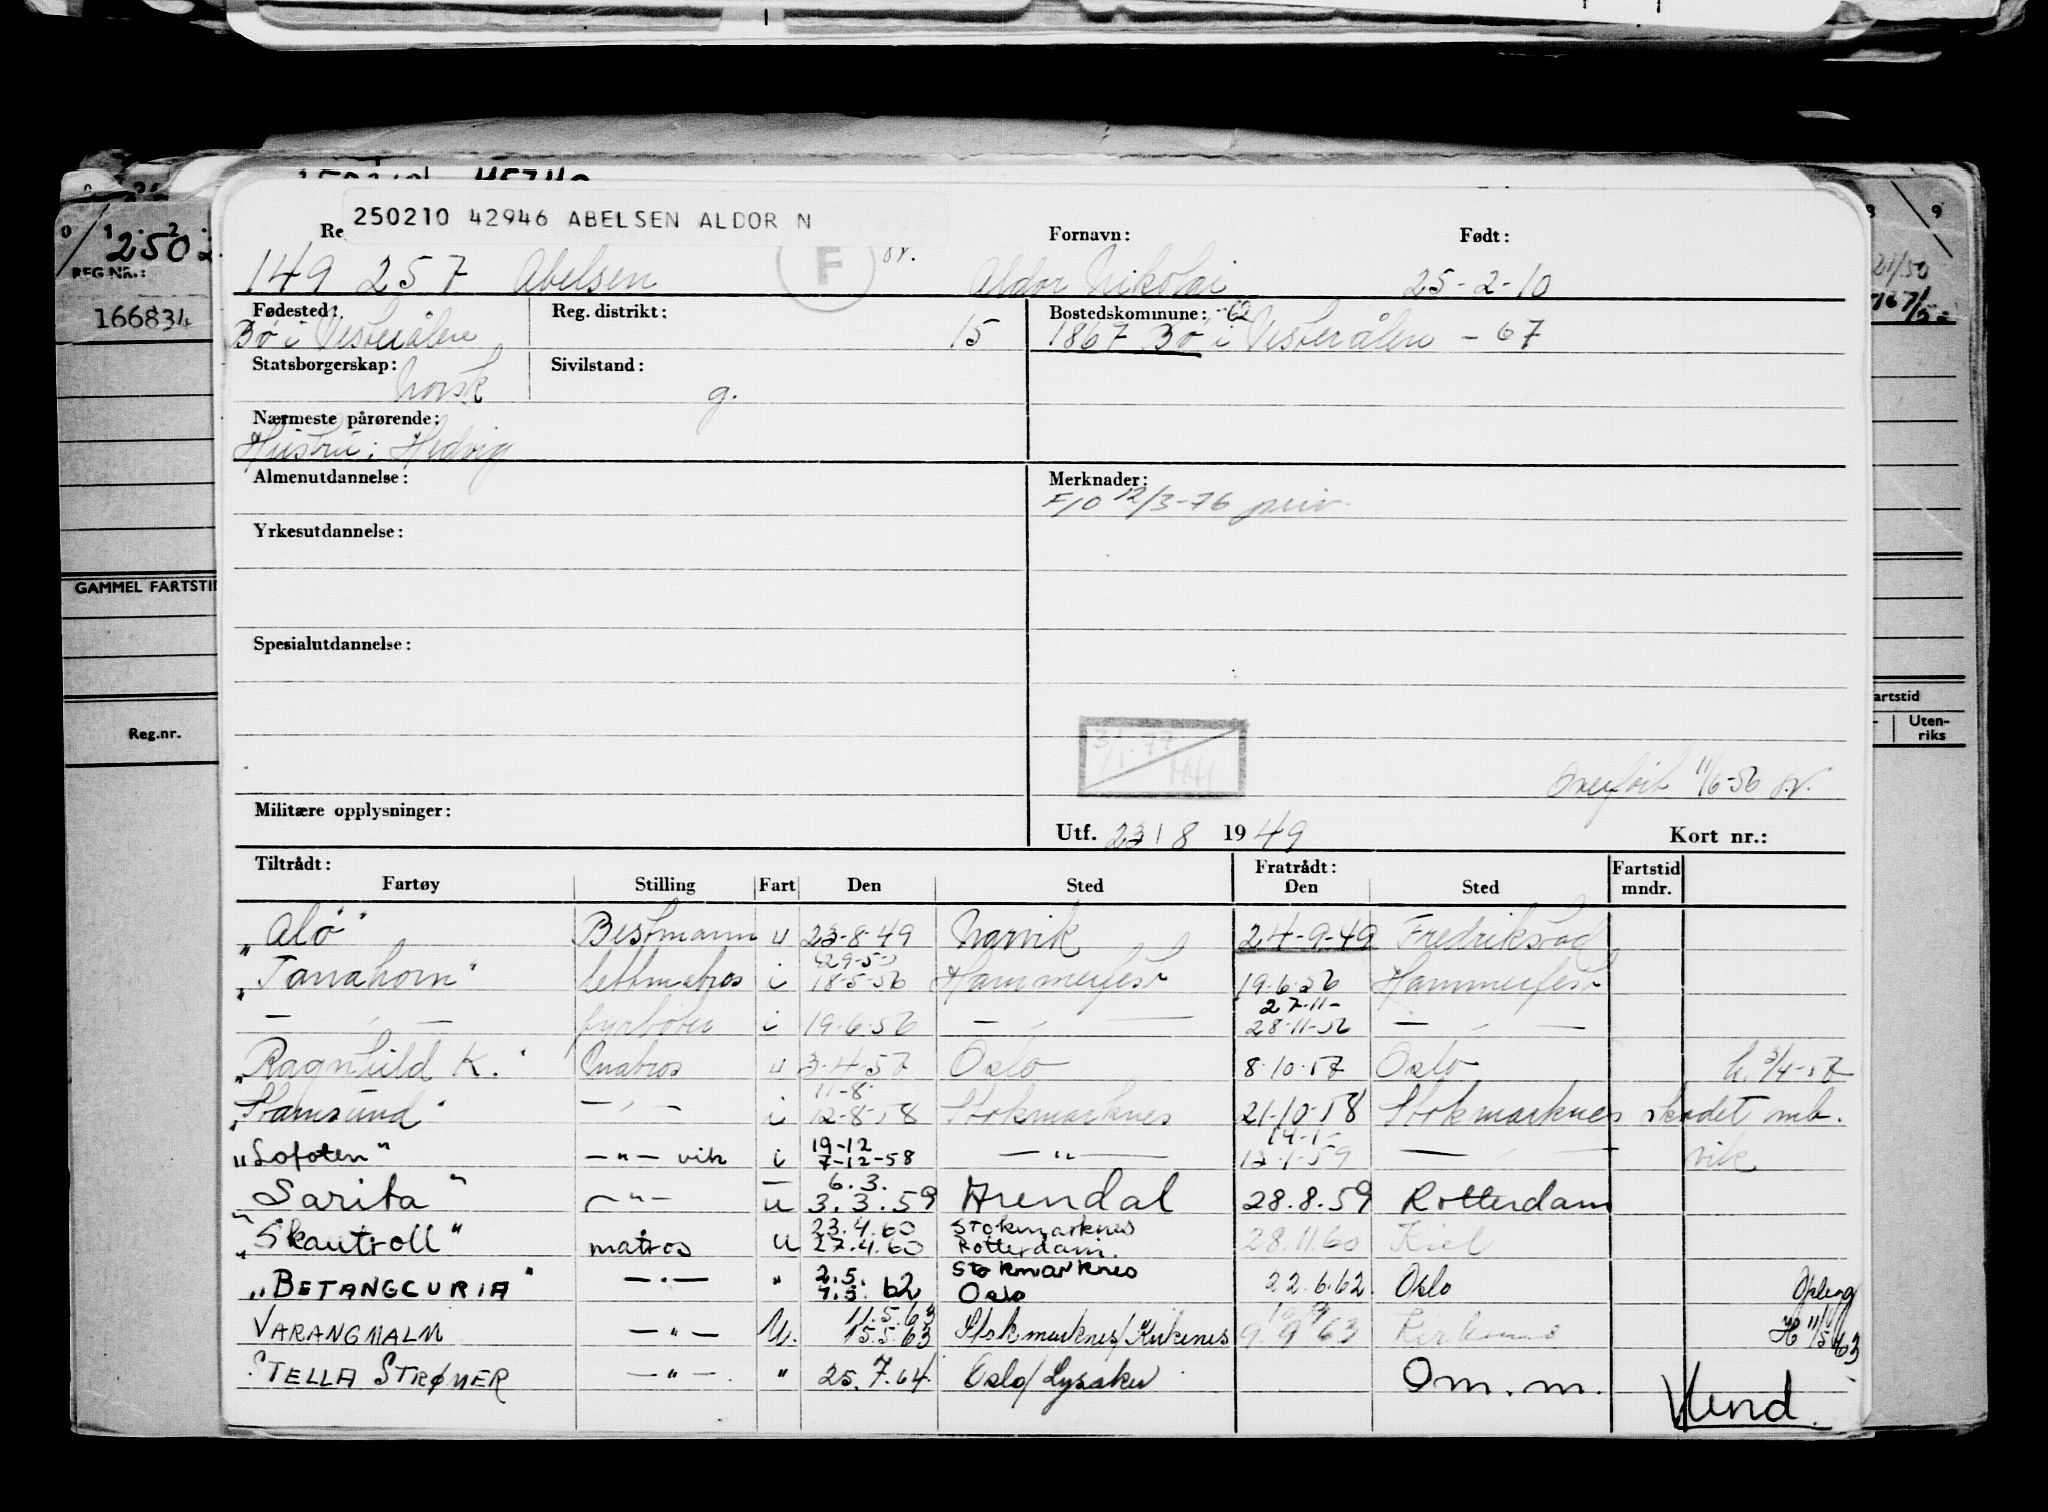 250210 42946 ABELSEN ALDOR N
Fornavn: Født:
149 257 Abelsen F Aldor Nikolai 25-2-10
Fødested: Reg. distrikt: Bostedskommune: -62
Bø i Vesterålen 15 1867 Bø i Vesterålen - 67
Statsborgerskap: Sivilstand:
Norsk g.
Nærmeste pårørende:
Hustru: Hedvig
Almenutdannelse: Merknader:
F/O 12/3-76
Yrkesutdannelse:
Spesialutdannelse:
3/1-77
HH
Overført 11/6-56
Militære opplysninger:
Utf. 23/8 1949 Kort nr.:
Tiltrådt: Fratrådt: Fartstid
Fartøy Stilling Fart Den Sted Den Sted mndr.
"Alö" Bestmann u 23-8-49 Narvik 24-9-49 Fredrikstad
"Tanahorn" lettmatros i 18-5-56 Hammerfest 19-6-56 Hammerfest
27-11-
— " — fyrbøter i 19-6-56 — " — 28-11-56 — " —
"Ragnhild K." Matros u 3-4-57 Oslo 8-10-57 Oslo h. 3/4-57
11-8-
"Stamsund" — " — i 12-8-58 Stokmarknes 21-10-58 Stokmarknes skadet
19-12 14-1-
"Lofoten" — " — vik i 7-12-58 — " — 13-1-59 — " — vik
6.3.
"Sarita" — " — u 3.3.59 Arendal 28.8.59 Rotterdam
23.4.60 Stokmarknes
"Skautroll" matros u 27.4.60 Rotterdam. 28.11.60 Kiel
2.5. Stokmarknes
"BETANGCURIA" — " — " 7.5. 62 Oslo 22.6.62 Oslo
11.5.63
VARANGMALM — " — U. 15.5.63 Stokmarknes/Kirkenes 9.9 63 Kirkenes H 11/5 63
STELLA STRØMER — " — " 25.7.64 Oslo/Lysaker Om. m.
Vend.
0 1 2
2502
REG.NR.:
166834
GAMMEL FARTSTI
Reg.nr.
9
21/50
artstid
Uten-
riks